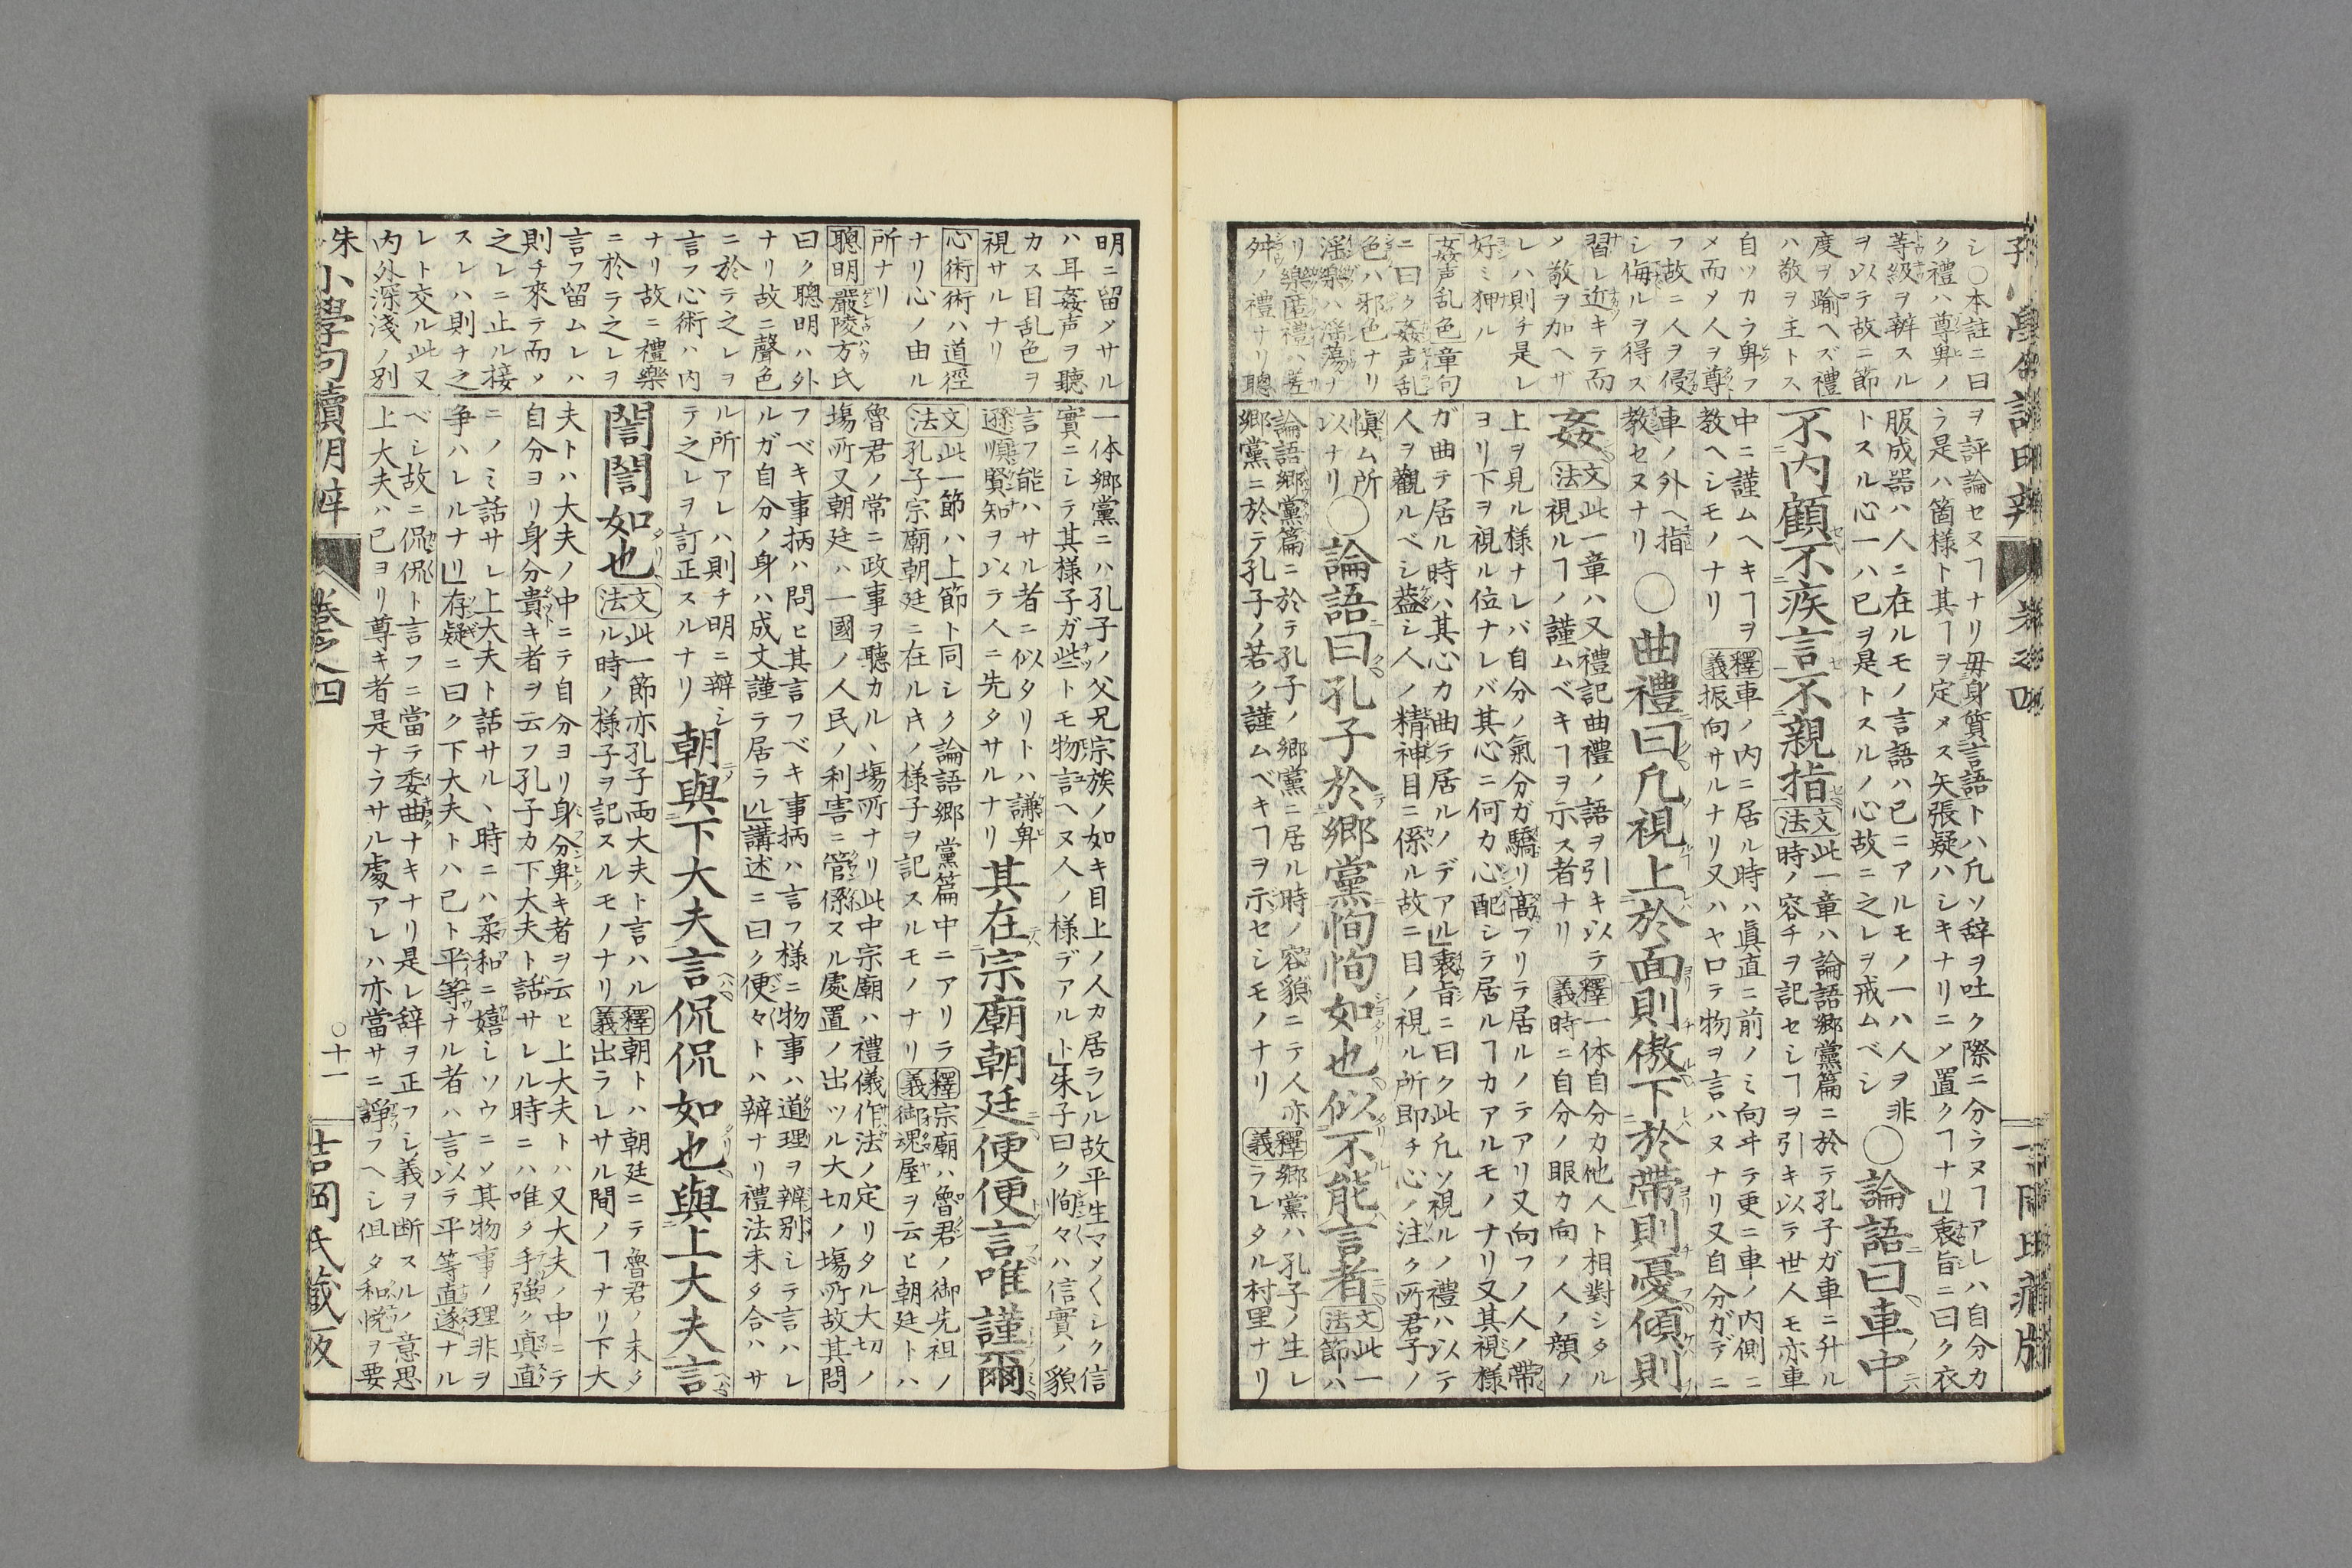 シ〇本註ニ曰
ク禮ハ尊卑ノ
等級ヲ辨スル
ヲ以テ故ニ節
度ヲ踰ヘズ禮
ハ敬ヲ主トス
自ツカラ卑フ
メ而メ人ヲ尊
フ故ニ人ヲ侵
シ侮ルヲ得ス
習レ近キテ而
メ敬ヲ加ヘザ
レハ則チ是レ
好ミ狎ル
姦声乱色章句
ニ曰ク姦声乱
色ハ邪色ナリ
淫樂ハ淫蕩ナ
リ樂慝禮ハ差
舛ノ禮ナリ聰
ヲ評論セヌヿナリ毋身質言語トハ凡ソ辞ヲ吐ク際ニ分ラヌヿアレハ自分カ
ラ是ハ箇様ト其ヿヲ定メス矢張疑ハシキナリニメ置クヿナリ」衷旨ニ曰ク衣
服成器ハ人ニ在ルモノ言語ハ已ニアルモノ一ハ人ヲ非
トスル心一ハ已ヲ是トスルノ心故ニ之レヲ戒ムベシ
〇論語曰車中
不内顧不疾言不親指
文法此一章ハ論語郷黨篇ニ於テ孔子ガ車ニ升ル
時ノ容チヲ記セシヿヲ引キ以テ世人モ亦車
中ニ謹ムヘキヿヲ
教ヘシモノナリ
釋義車ノ内ニ居ル時ハ眞直ニ前ノミ向ヰテ更ニ車ノ内側ニ
振向サルナリ又ハヤロテ物ヲ言ハヌナリ又自分ガデニ
車ノ外ヘ指
教セヌナリ
〇曲禮曰凡視上於面則傲下於帶則憂傾則
姦
文法此一章ハ又禮記曲禮ノ語ヲ引キ以テ
視ルヿノ謹ムベキヿヲ示ス者ナリ
釋義一体自分カ他人ト相對シタル
時ニ自分ノ眼カ向ノ人ノ顔ノ
上ヲ見ル様ナレバ自分ノ氣分ガ驕リ髙ブリテ居ルノテアリ又向フノ人ノ帶
ヨリ下ヲ視ル位ナレバ其心ニ何カ心配シテ居ルヿカアルモノナリ又其視様
ガ曲テ居ル時ハ其心カ曲テ居ルノデアル」衷旨ニ曰ク此凡ソ視ルノ禮ハ以テ
人ヲ觀ルベシ葢シ人ノ精神目ニ係ル故ニ目ノ視ル所即チ心ノ注ク所君子ノ
慎ム所
以ナリ
〇論語曰孔子於郷黨恂恂如也似不能言者
文法此一
節ハ
論語郷黨篇ニ於テ孔子ノ郷黨ニ居ル時ノ容貌ニテ人亦
郷黨ニ於テ孔子ノ若ク謹ムベキヿヲ示セシモノナリ
釋義郷黨ハ孔子ノ生レ
ラレタル村里ナリ
明ニ留メサル
ハ耳姦声ヲ聽
カス目乱色ヲ
視サルナリ
心術術ハ道徑
ナリ心ノ由ル
所ナリ
聰明嚴陵方氏
曰ク聰明ハ外
ナリ故ニ聲色
ニ於テ之レヲ
言フ心術ハ内
ナリ故ニ禮樂
ニ於テ之レヲ
言フ留ムレハ
則チ來テ而メ
之レニ止ル接
スレハ則チ之
レト交ル此又
内外深淺ノ別
一体郷黨ニハ孔子ノ父兄宗族ノ如キ目上ノ人カ居ラレル故平生マメ〱シク信
實ニシテ其様子ガ些トモ物言ヘヌ人ノ様デアルト」朱子曰ク恂々ハ信實ノ貌
言フ能ハサル者ニ似タリトハ謙卑
遜順賢知ヲ以テ人ニ先タサルナリ
其在宗廟朝廷便便言唯謹爾
文法此一節ハ上節ト同シク論語郷黨篇中ニアリテ
孔子宗廟朝廷ニ在ルキノ様子ヲ記スルモノナリ
釋義宗廟ハ魯君ノ御先祖ノ
御魂屋ヲ云ヒ朝廷トハ
魯君ノ常ニ政事ヲ聽カル、塲所ナリ此中宗廟ハ禮儀作法ノ定リタル大切ノ
塲所又朝廷ハ一國ノ人民ノ利害ニ管係スル處置ノ出ツル大切ノ塲所故其問
フベキ事柄ハ問ヒ其言フベキ事柄ハ言フ様ニ物事ハ道理ヲ辨別シテ言ハレ
ルガ自分ノ身ハ成丈謹テ居ラル」講述ニ曰ク便々トハ辨ナリ禮法未タ合ハサ
ル所アレハ則チ明ニ辯シ
テ之レヲ訂正スルナリ
朝與下大夫言侃侃如也與上大夫言
誾誾如也
文法此一節亦孔子両大夫ト言ハル
ル時ノ様子ヲ記スルモノナリ
釋義朝トハ朝廷ニテ魯君ノ未タ
出ラレサル間ノヿナリ下大
夫トハ大夫ノ中ニテ自分ヨリ身分卑キ者ヲ云ヒ上大夫トハ又大夫ノ中ニテ
自分ヨリ身分貴キ者ヲ云フ孔子カ下大夫ト話サレル時ニハ唯タ手強ク真直
ニノミ話サレ上大夫ト話サル、時ニハ柔和ニ嬉シソウニソ其物事ノ理非ヲ
争ハレルナリ」存疑ニ曰ク下大夫トハ己ト平等ナル者ハ言以テ平等直遂ナル
ベシ故ニ侃侃ト言フニ當テ委曲ナキナリ是レ辞ヲ正フシ義ヲ断スルノ意思
上大夫ハ已ヨリ尊キ者是ナラサル處アレハ亦當サニ諍フヘシ但タ和悦ヲ要
朱
小學句讀明辨
卷之四
〇十一
吉岡氏藏版